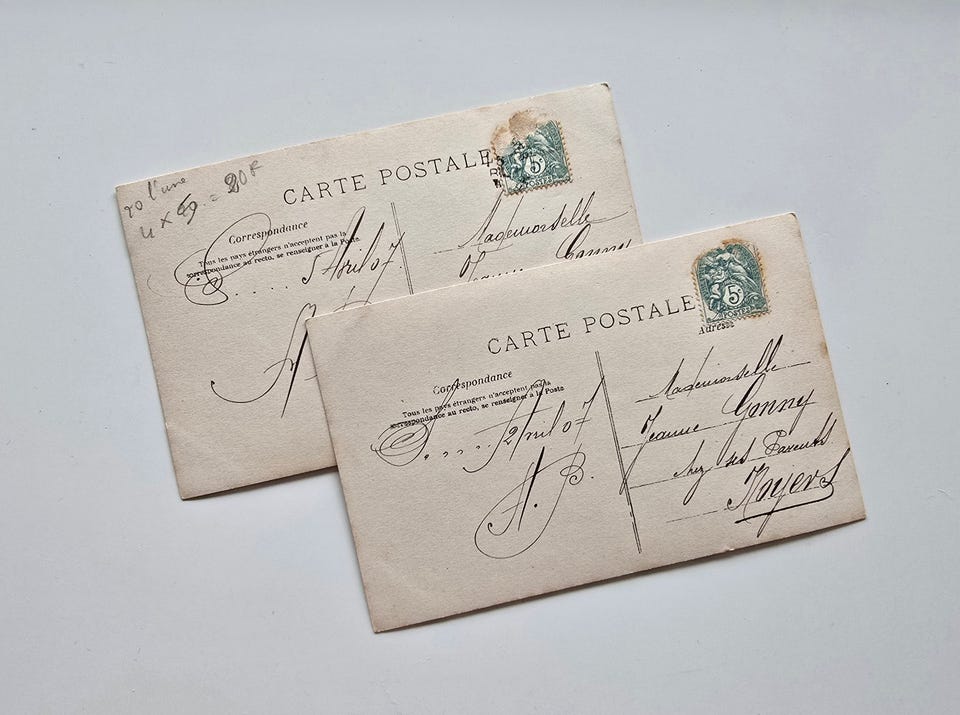 20 l'une
4 x = 80F
CARTE POSTALE
5c
POSTES
Correspondance
Tous les pays étrangers n'acceptent pas la
correspondance au recto, se renseigner à la Poste.
5 Avril 07.
Mademoiselle
Gonny
CARTE POSTALE
5c
POSTES
Adresse
Correspondance
Tous les pays étrangers n'acceptent pas la
correspondance au recto, se renseigner à la Poste
Avril 07
A. B.
Mademoiselle
Jeanne Gonny
chez ses Parents
Noyers